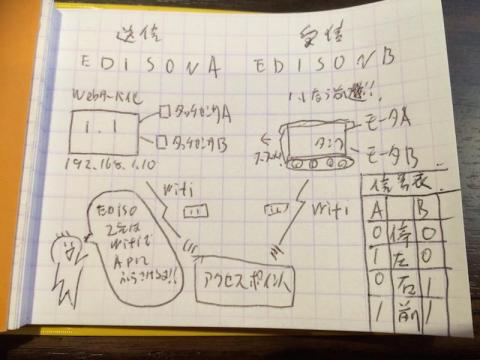 送信
EDISON A
Webサーバ化
1.1
タッチセンサA
タッチセンサB
192.168.1.10
受信
EDISON B
1.1なら前進!!
タンク
モータA
モータB
wifi
wifi
EDISO
2台は
wifiで
APに
ぶらさげる!!
アクセスポイント
信号表
A B
0 停 0
1 左 0
0 右 1
1 前 1